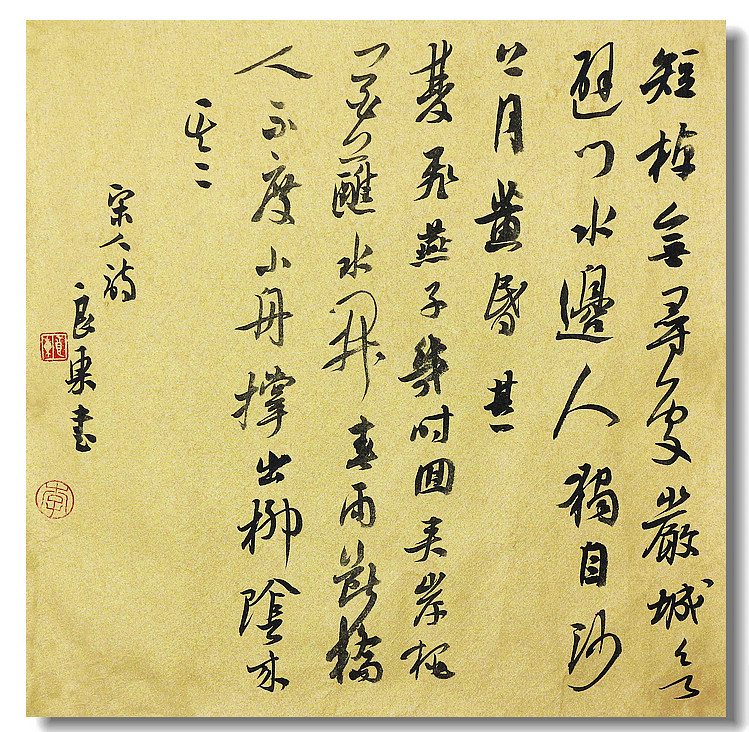 短棹無尋處嚴城欲
避门水邊人獨自沙
上月黃昏 其一
雙飛燕子幾时回夾岸桃
花蘸水開春雨斷橋
人不度小舟撐出柳陰來
其二
宋人詩
良東书
李